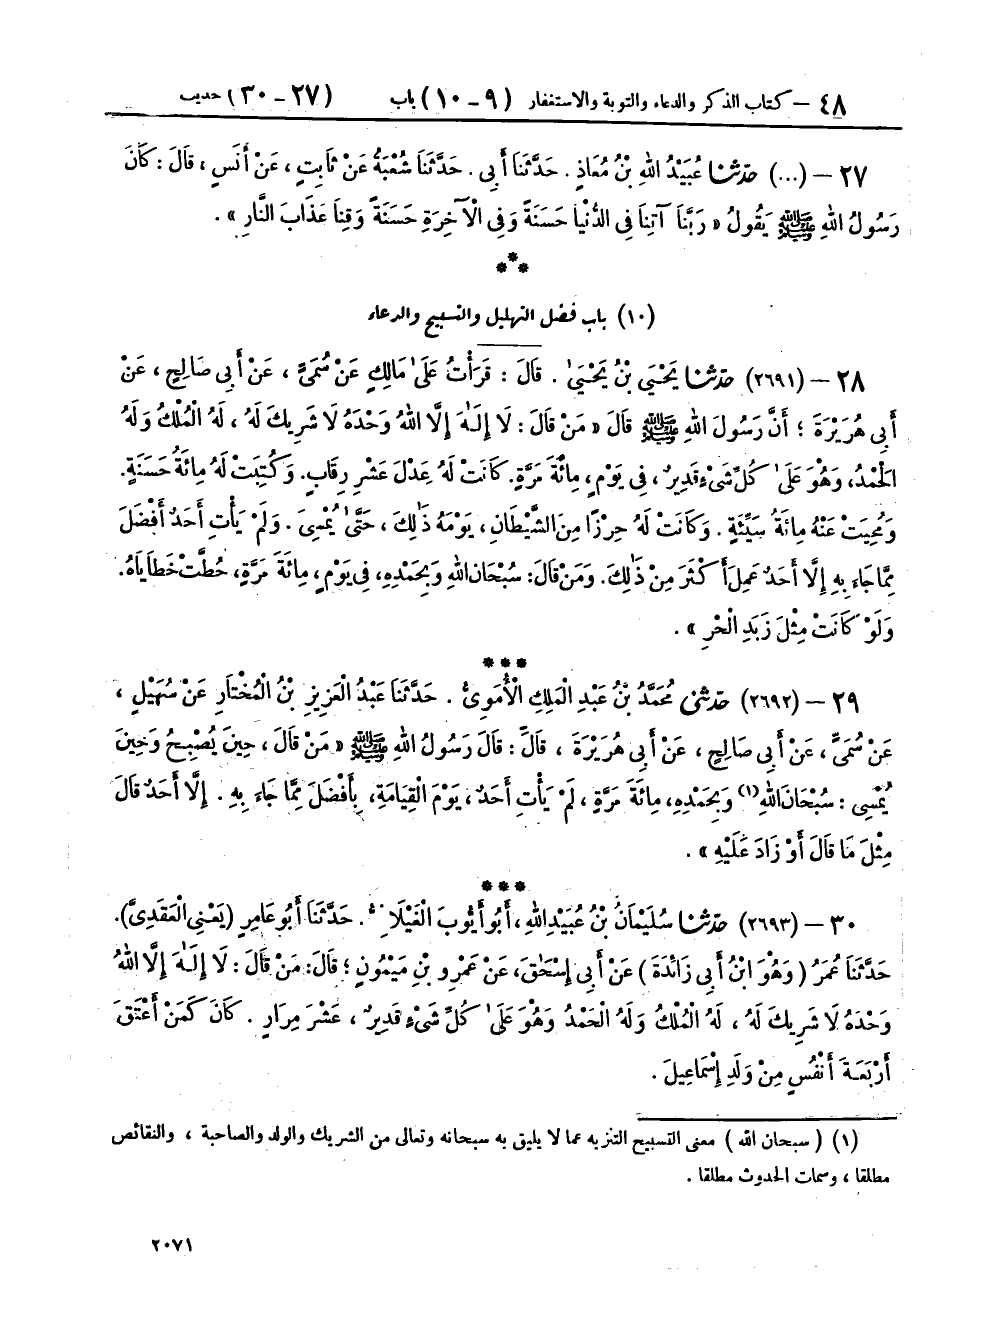 ٤٨ – كتاب الذكر والدعاء والتوبة والاستغفار (٩ – ١٠) باب (٢٧ – ٣٠) حديث
٢٧ – (...) حَدَّثَنَا عُبَيْدُ اللهِ بْنُ مُعَاذٍ . حَدَّثَنَا أَبِى . حَدَّثَنَا شُعْبَةُ عَنْ ثَابِتٍ ، عَنْ أَنَسٍ ، قَالَ : كَانَ
رَسُولُ اللهِ ﷺ يَقُولُ « رَبَّنَا آتِنَا فِى الدُّنْيَا حَسَنَةً وَفِى الْآخِرَةِ حَسَنَةً وَقِنَا عَذَابَ النَّارِ » .
***
(١٠) باب فضل التهليل والتسبيح والدعاء
٢٨ – (٢٦٩١) حَدَّثَنَا يَحْيَىٰ بْنُ يَحْيَىٰ . قَالَ : قَرَأْتُ عَلَىٰ مَالِكٍ عَنْ سُمَىٍّ ، عَنْ أَبِى صَالِحٍ ، عَنْ
أَبِى هُرَيْرَةَ ؛ أَنَّ رَسُولَ اللهِ ﷺ قَالَ « مَنْ قَالَ : لَا إِلَـٰهَ إِلَّا اللهُ وَحْدَهُ لَا شَرِيكَ لَهُ ، لَهُ الْمُلْكُ وَلَهُ
الْحَمْدُ، وَهُوَ عَلَىٰ كُلِّ شَىْءٍ قَدِيرٌ ، فِى يَوْمٍ، مِائَةَ مَرَّةٍ. كَانَتْ لَهُ عِدْلَ عَشْرِ رِقَابٍ. وَكُتِبَتْ لَهُ مِائَةُ حَسَنَةٍ.
وَمُحِيَتْ عَنْهُ مِائَةُ سَيِّئَةٍ . وَكَانَتْ لَهُ حِرْزًا مِنَ الشَّيْطَانِ ، يَوْمَهُ ذَٰلِكَ ، حَتَّىٰ يُمْسِىَ . وَلَمْ يَأْتِ أَحَدٌ أَفْضَلَ
مِمَّا جَاءَ بِهِ إِلَّا أَحَدٌ عَمِلَ أَكْثَرَ مِنْ ذَٰلِكَ. وَمَنْ قَالَ: سُبْحَانَ اللهِ وَبِحَمْدِهِ، فِى يَوْمٍ، مِائَةَ مَرَّةٍ، حُطَّتْ خَطَايَاهُ.
وَلَوْ كَانَتْ مِثْلَ زَبَدِ الْبَحْرِ » .
***
٢٩ – (٢٦٩٢) حَدَّثَنِى مُحَمَّدُ بْنُ عَبْدِ الْمَلِكِ الْأُمَوِىُّ . حَدَّثَنَا عَبْدُ الْعَزِيزِ بْنُ الْمُخْتَارِ عَنْ سُهَيْلٍ ،
عَنْ سُمَىٍّ ، عَنْ أَبِى صَالِحٍ ، عَنْ أَبِى هُرَيْرَةَ ، قَالَ : قَالَ رَسُولُ اللهِ ﷺ « مَنْ قَالَ ، حِينَ يُصْبِحُ وَحِينَ
يُمْسِى : سُبْحَانَ اللهِ(١) وَبِحَمْدِهِ، مِائَةَ مَرَّةٍ ، لَمْ يَأْتِ أَحَدٌ ، يَوْمَ الْقِيَامَةِ، بِأَفْضَلَ مِمَّا جَاءَ بِهِ . إِلَّا أَحَدٌ قَالَ
مِثْلَ مَا قَالَ أَوْ زَادَ عَلَيْهِ » .
***
٣٠ – (٢٦٩٣) حَدَّثَنَا سُلَيْمَانُ بْنُ عُبَيْدِ اللهِ ، أَبُو أَيُّوبَ الْغَيْلَانِىُّ . حَدَّثَنَا أَبُو عَامِرٍ (يَعْنِى الْعَقَدِىَّ).
حَدَّثَنَا عُمَرُ (وَهُوَ ابْنُ أَبِى زَائِدَةَ) عَنْ أَبِى إِسْحَٰقَ، عَنْ عَمْرِو بْنِ مَيْمُونٍ ؛ قَالَ: مَنْ قَالَ : لَا إِلَـٰهَ إِلَّا اللهُ
وَحْدَهُ لَا شَرِيكَ لَهُ ، لَهُ الْمُلْكُ وَلَهُ الْحَمْدُ وَهُوَ عَلَىٰ كُلِّ شَىْءٍ قَدِيرٌ ، عَشْرَ مِرَارٍ . كَانَ كَمَنْ أَعْتَقَ
أَرْبَعَةَ أَنْفُسٍ مِنْ وَلَدِ إِسْمَاعِيلَ .
(١) ( سبحان الله ) معنى التسبيح التنزيه عما لا يليق به سبحانه وتعالى من الشريك والولد والصاحبة ، والنقائص
مطلقا ، وسمات الحدوث مطلقا .
٢٠٧١